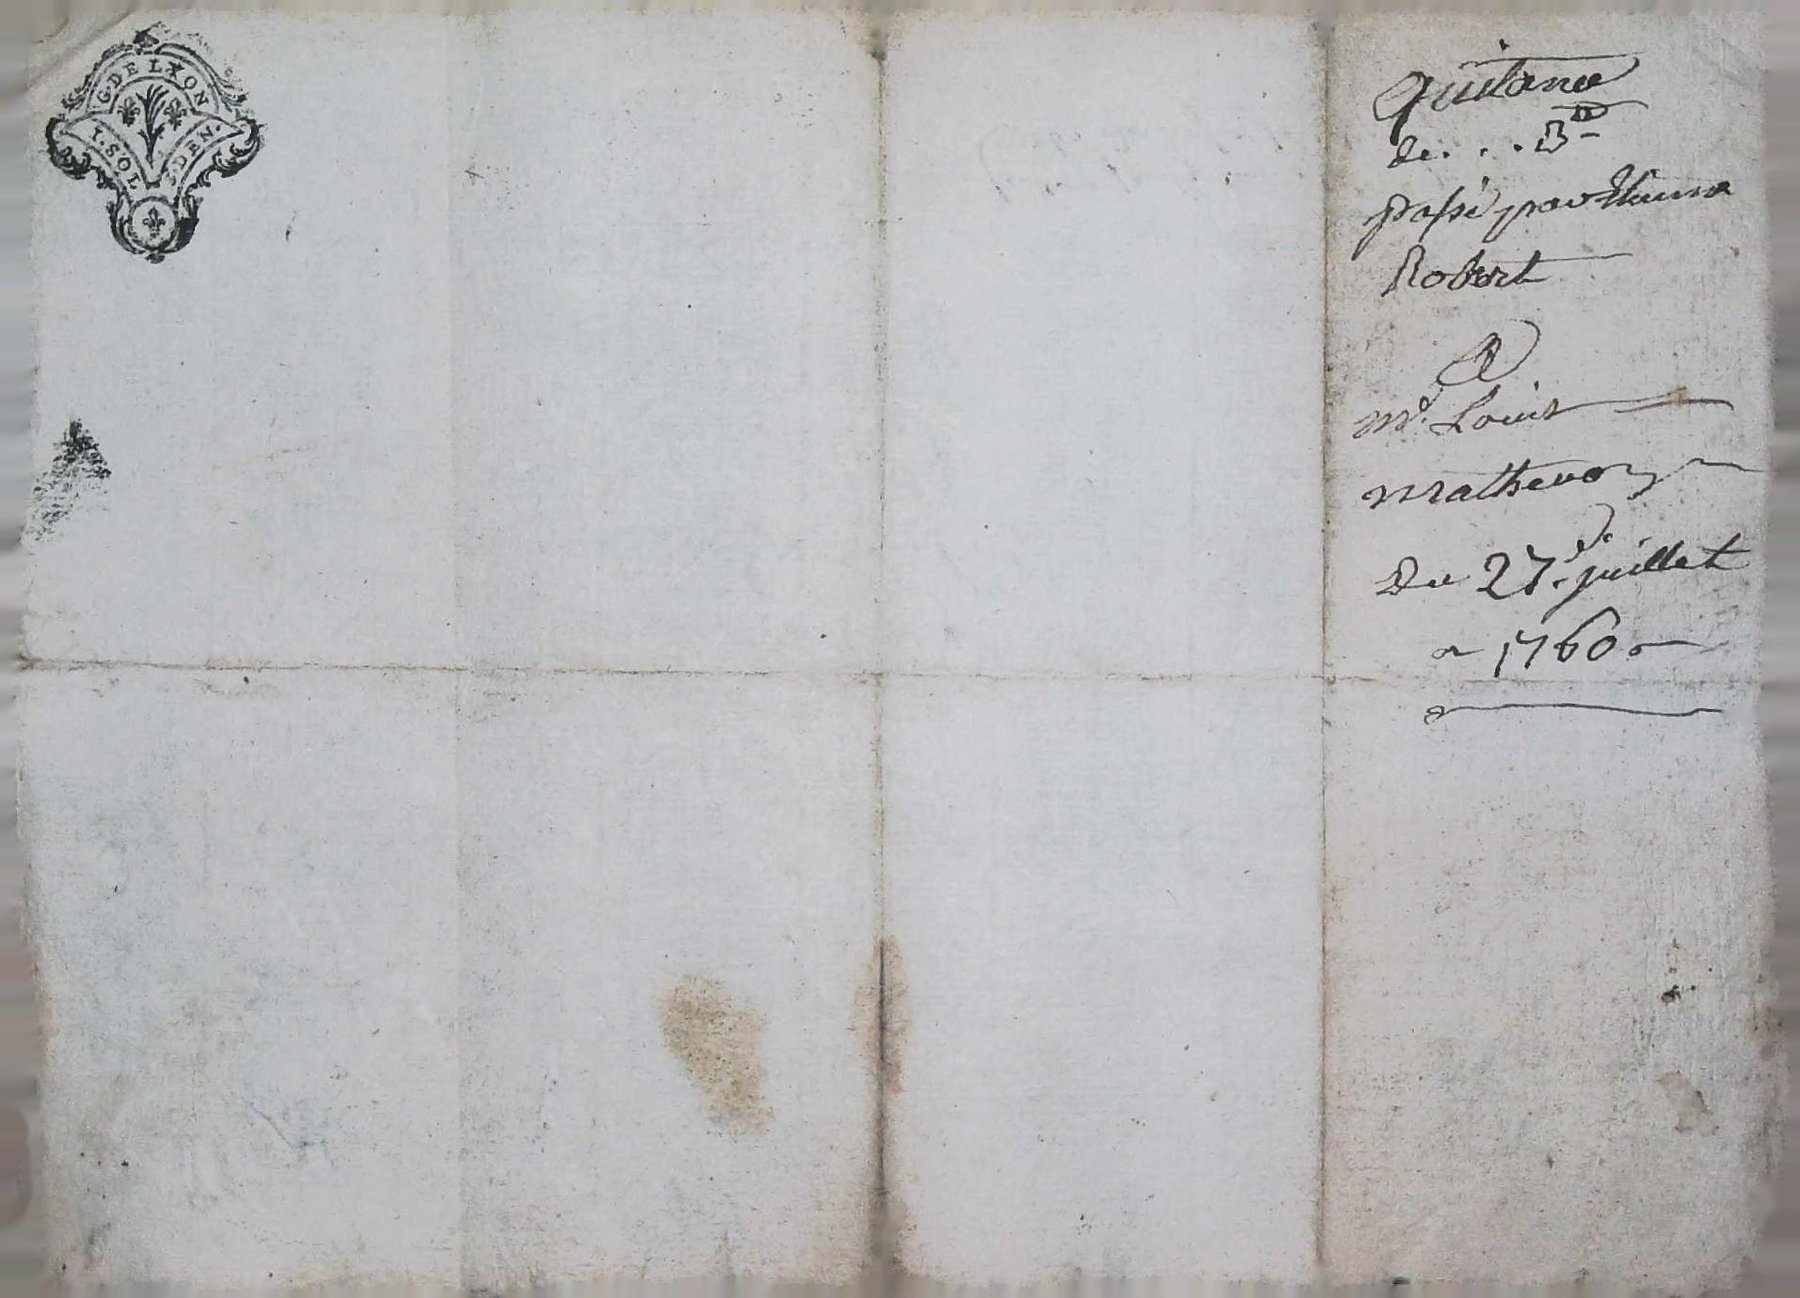 G. DE LYON
I. SOL
DEN.
Quitance
de . . . 3
passé par
Robert
A
Mr. Louis
Mathevon
Du 27e. juillet
1760